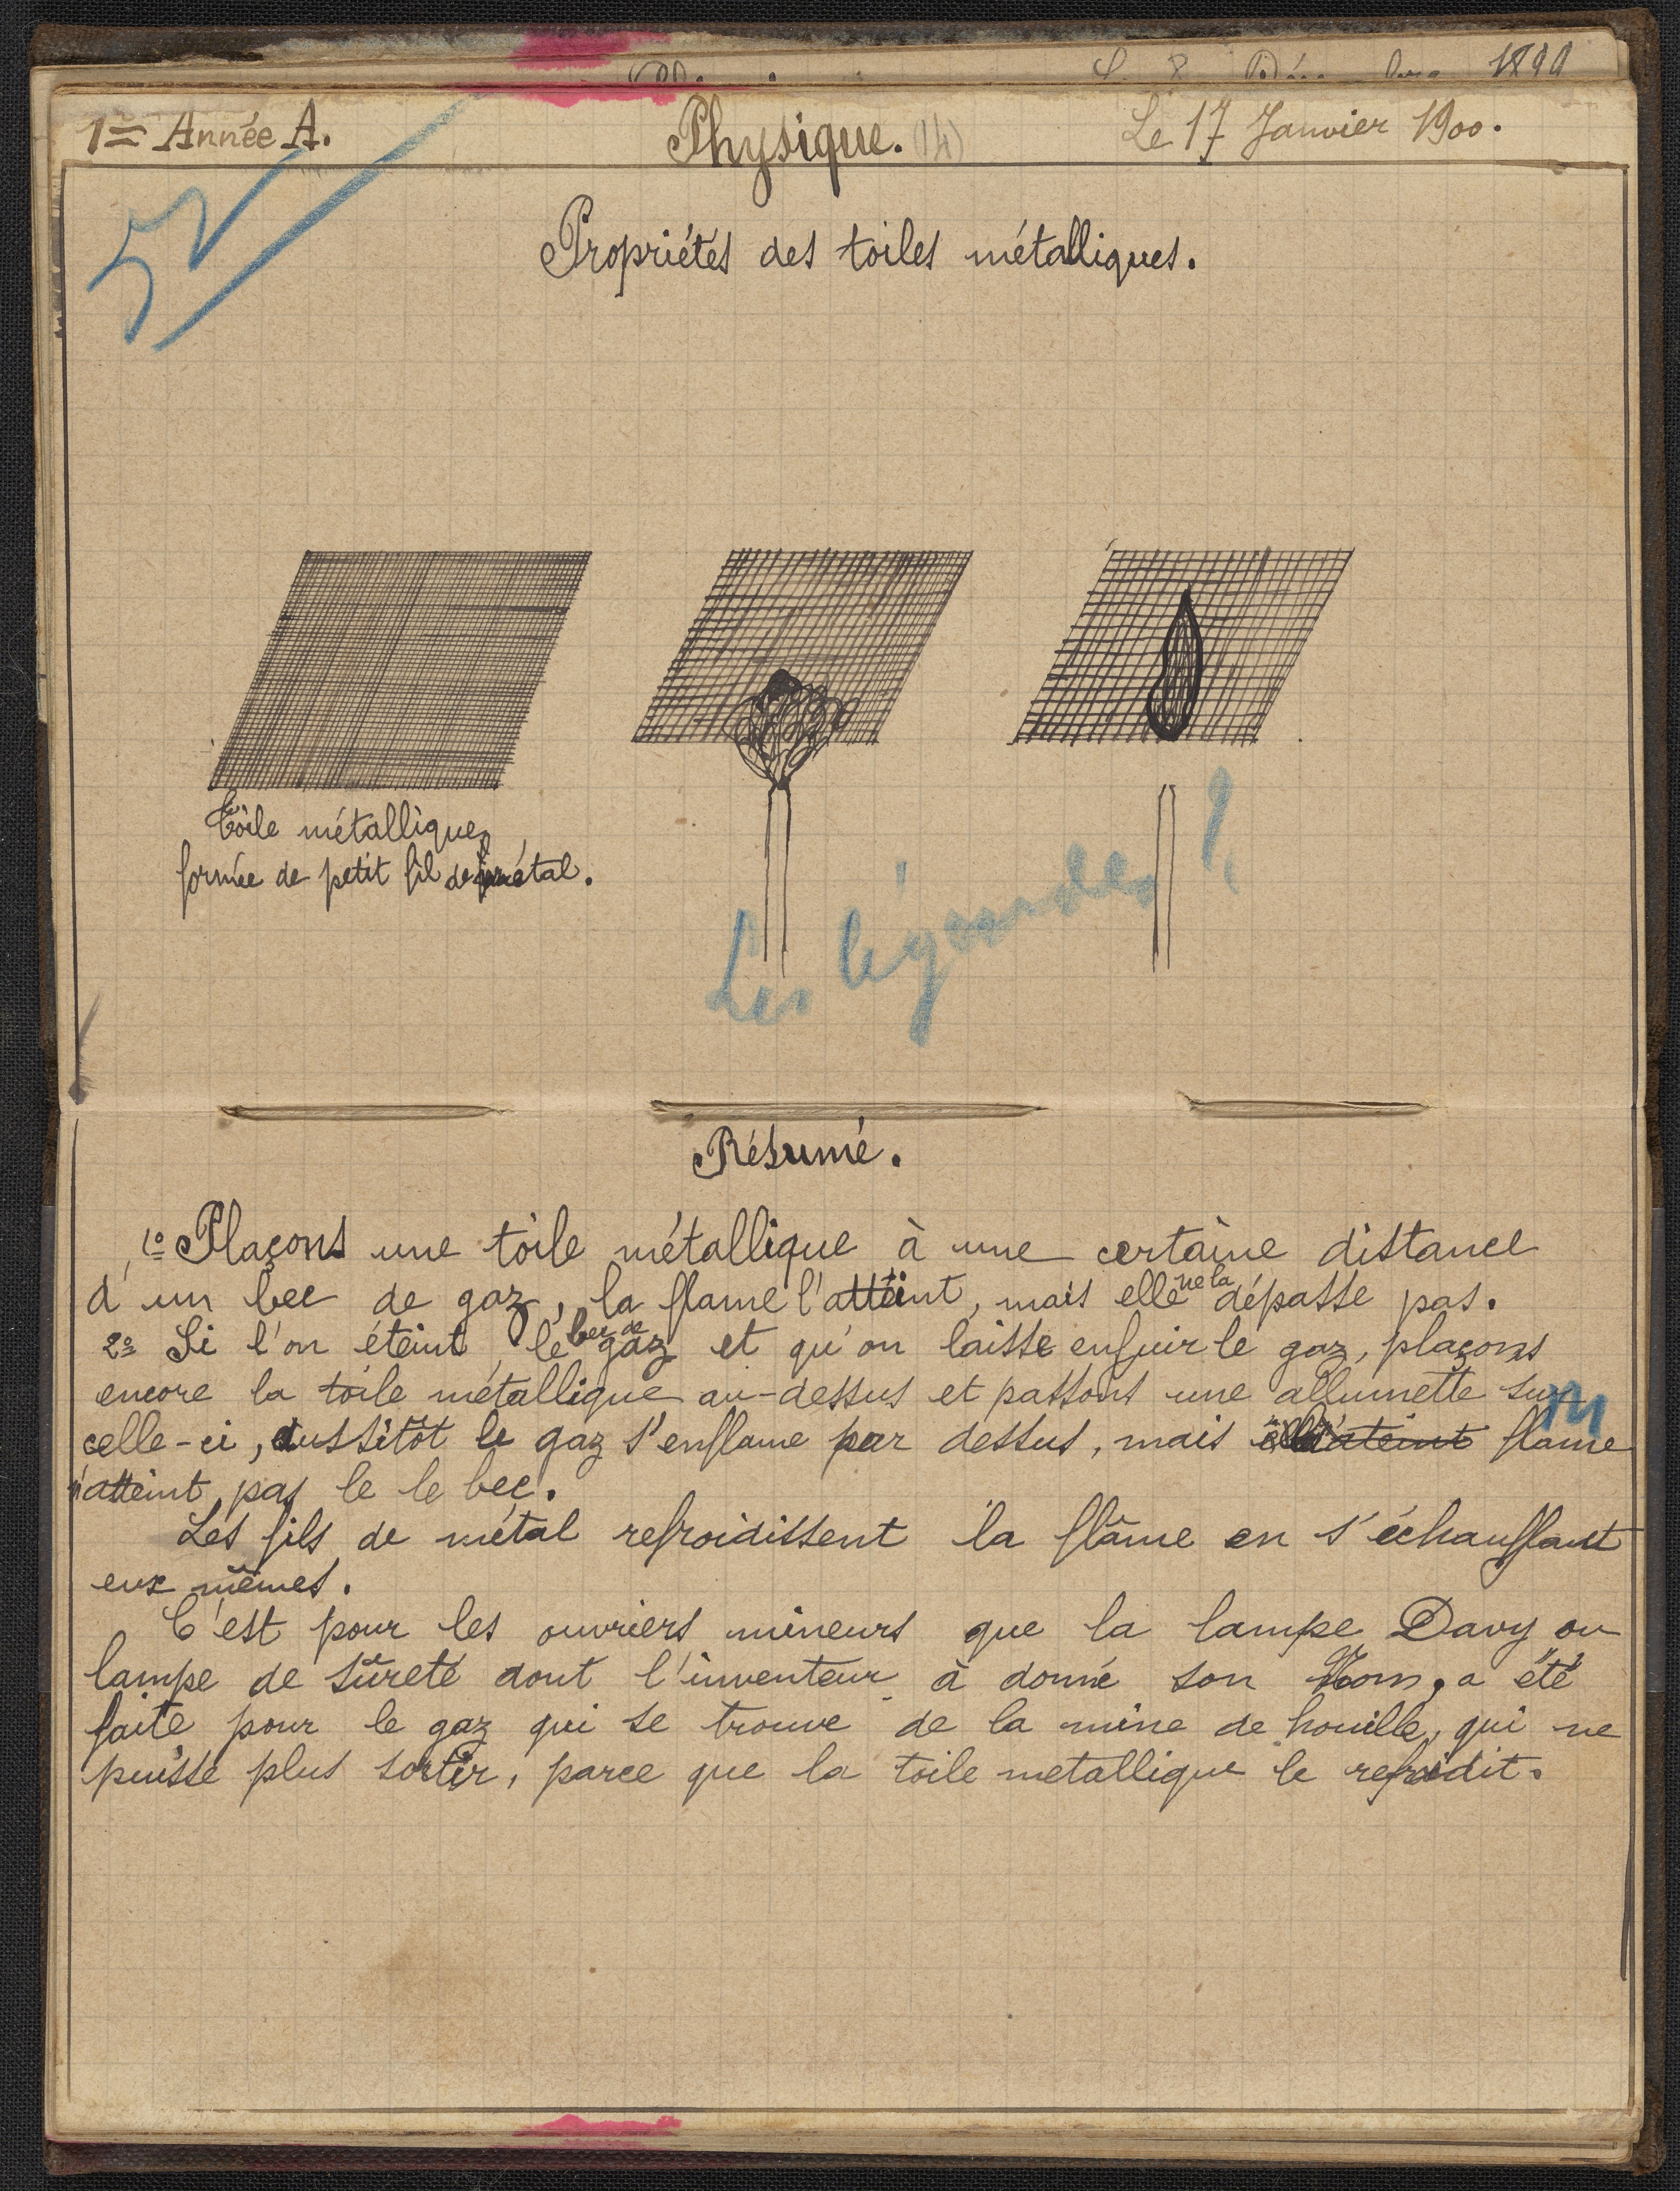 1899
1re Année A.
Physique. (14)
Le 17 Janvier 1900.
52
Propriétés des toiles métalliques.
Toile métallique,
formée de petit fil de métal.
Les légendes ?
Résumé.
1o Plaçons une toile métallique à une certaine distance
d'un bec de gaz, la flame l'atteint, mais elle ne la dépasse pas.
2o Si l'on éteint le bec de gaz et qu'on laisse enfuir le gaz, plaçons
encore la toile métallique au-dessus et passons une allumette sur
celle-ci, aussitôt le gaz s'enflame par dessus, mais flame
m
n'atteint pas le le bec.
Les fils de métal refroidissent la flâme en s'échauffant
eux mêmes.
C'est pour les ouvriers mineurs que la lampe Davy ou
lampe de sûreté dont l'inventeur à donné son Nom, a été
faite pour le gaz qui se trouve de la mine de houille, qui ne
puisse plus sortir, parce que la toile metallique le refroidit.